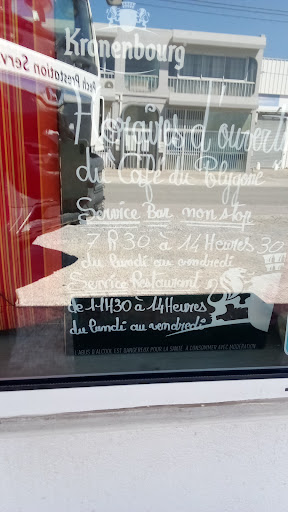 Kronenbourg
Pech Prestation Serv
Horaires d'ouvert
du Café du Polygone
Service Bar non stop
7H30 à 14Heures 30
du lundi au vendredi
Service Restaurant
de 11H30 à 14Heures
du lundi au vendredi
L'ABUS D'ALCOOL EST DANGEREUX POUR LA SANTÉ. A CONSOMMER AVEC MODÉRATION.